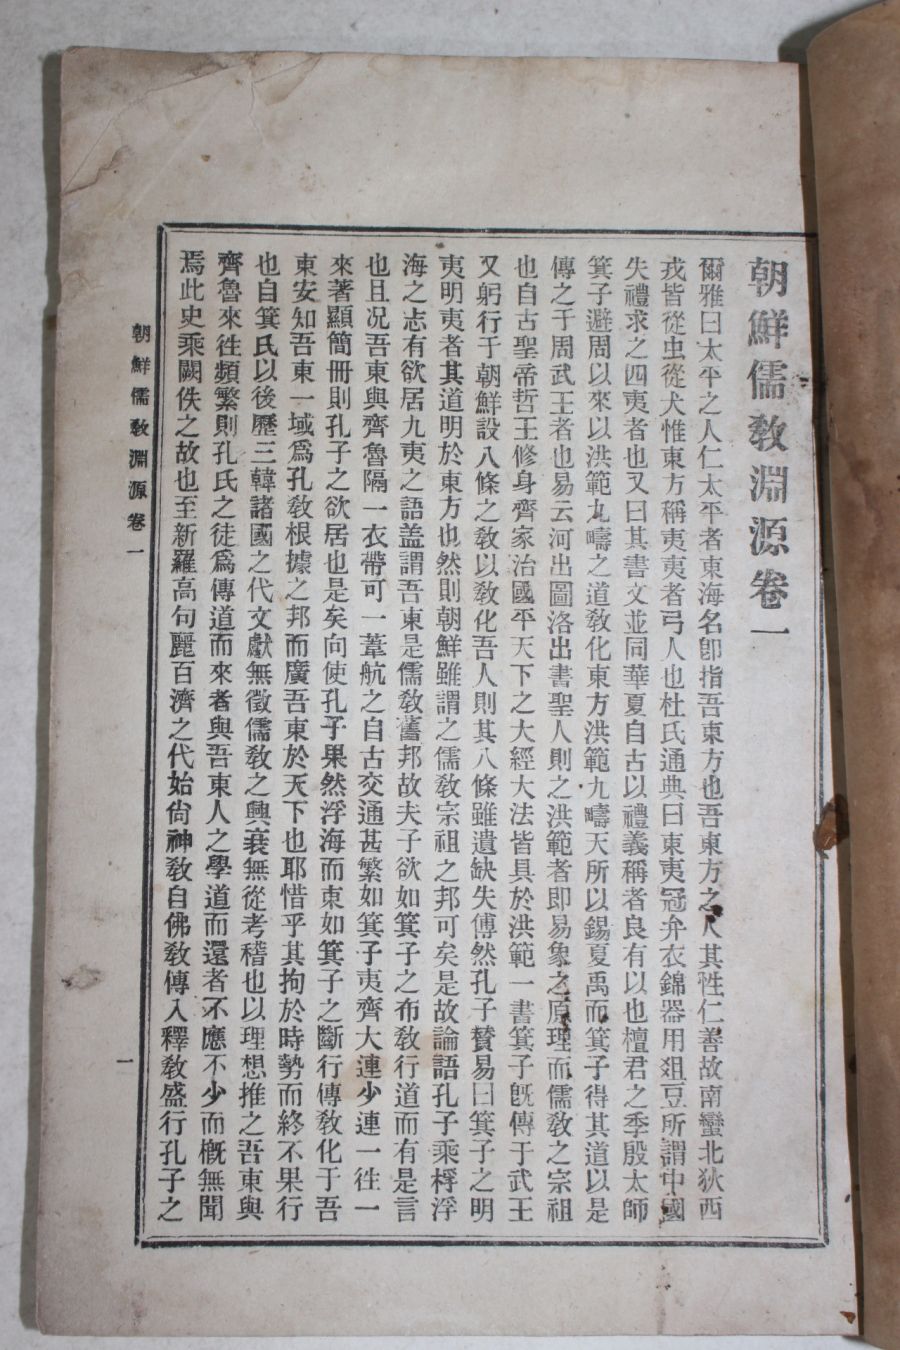 朝鮮儒教淵源卷一
爾雅曰太平之人仁太平者東海名卽指吾東方也吾東方之人其性仁善故南蠻北狄西
戎皆從虫從犬惟東方稱夷夷者弓人也杜氏通典曰東夷冠弁衣錦器用俎豆所謂中國
失禮求之四夷者也又曰其書文並同華夏自古以禮義稱者良有以也檀君之季殷太師
箕子避周以來以洪範九疇之道敎化東方洪範九疇天所以錫夏禹而箕子得其道以是
傳之于周武王者也易云河出圖洛出書聖人則之洪範者即易象之原理而儒敎之宗祖
也自古聖帝哲王修身齊家治國平天下之大經大法皆具於洪範一書箕子旣傳于武王
又躬行于朝鮮設八條之敎以敎化吾人則其八條雖遺缺失傳然孔子賛易曰箕子之明
夷明夷者其道明於東方也然則朝鮮雖謂之儒敎宗祖之邦可矣是故論語孔子乘桴浮
海之志有欲居九夷之語盖謂吾東是儒敎舊邦故夫子欲如箕子之布敎行道而有是言
也且况吾東與齊魯隔一衣帶可一葦航之自古交通甚繁如箕子夷齊大連少連一徃一
來著顯簡冊則孔子之欲居也是矣向使孔子果然浮海而東如箕子之斷行傳敎化于吾
東安知吾東一域爲孔敎根據之邦而廣吾東於天下也耶惜乎其拘於時勢而終不果行
也自箕氏以後歷三韓諸國之代文獻無徵儒敎之興衰無從考稽也以理想推之吾東與
齊魯來徃頻繁則孔氏之徒爲傳道而來者與吾東人之學道而還者不應不少而槪無聞
焉此史乘闕佚之故也至新羅高句麗百濟之代始尙神敎自佛敎傳入釋敎盛行孔子之
朝鮮儒敎淵源卷一
一